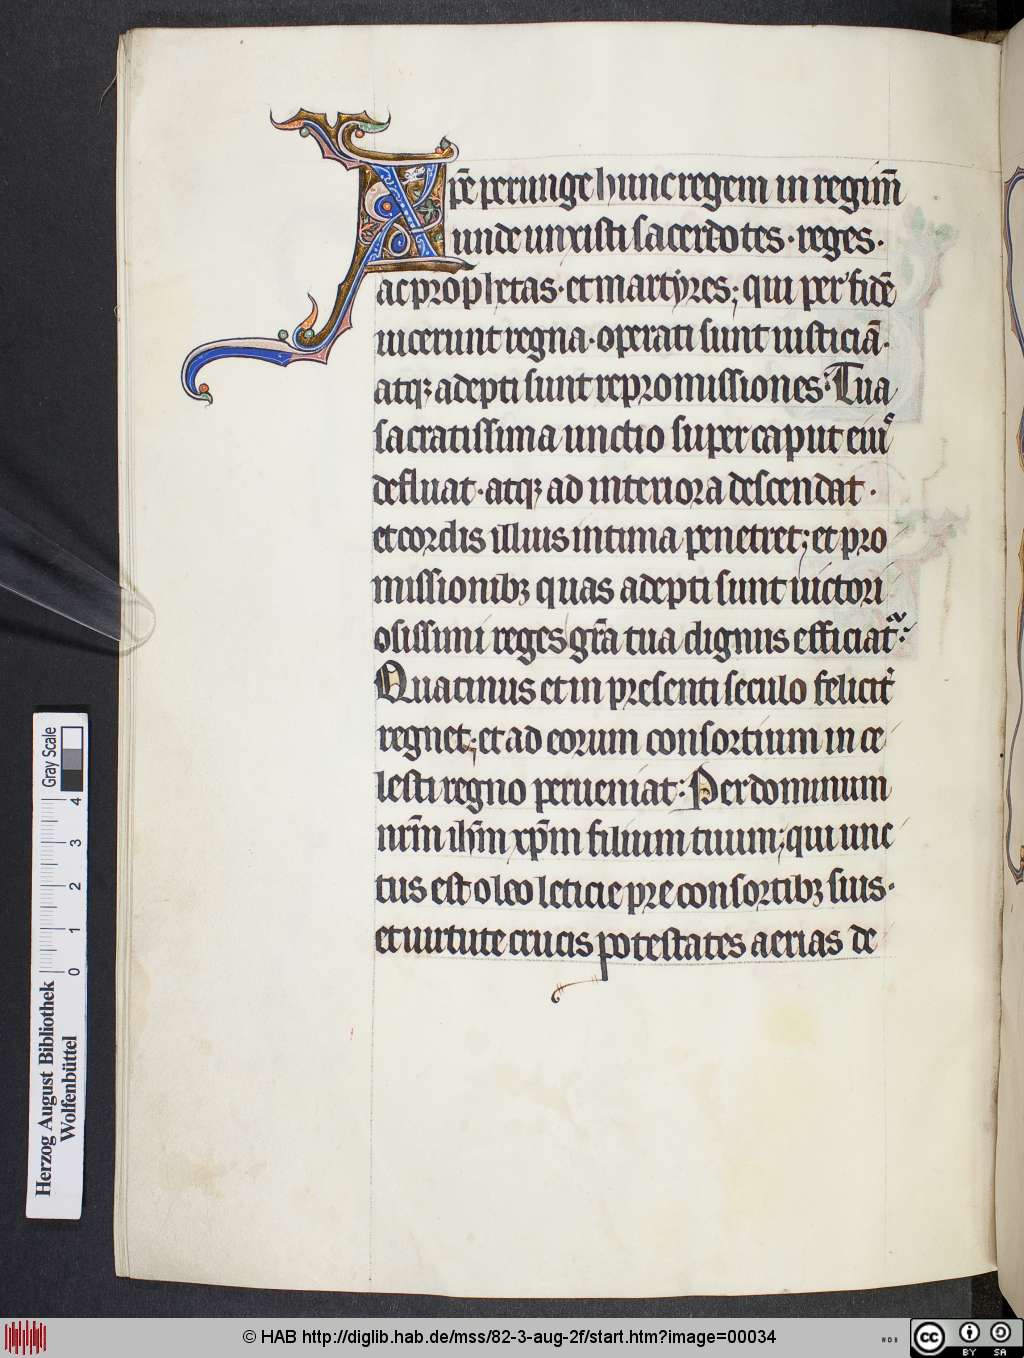 Xp̄e perunge hunc regem in regim̄
unde unxisti sacerdotes · reges ·
ac prophetas · et martyres; qui per fidē
uicerunt regna · operati sunt iusticiā ·
atqꝫ adepti sunt repromissiones: Tua
sacratissima unctio super caput eiuˢ
defluat · atqꝫ ad interiora descendat ·
et cordis illius intima penetret; et pro
missionibꝫ quas adepti sunt uictori
osissimi reges gr̄a tua dignus efficiat᷑:
Quatinus et in presenti seculo felicit᷑
regnet; et ad eorum consortium in ce
lesti regno perueniat: Per dominum
nr̄m ih̄m xp̄m filium tuum; qui unc
tus est oleo leticie pre consortibꝫ suis ·
et uirtute crucis potestates aerias de
Herzog August Bibliothek
Wolfenbüttel
0 1 2 3 4
Gray Scale
© HAB http://diglib.hab.de/mss/82-3-aug-2f/start.htm?image=00034
cc BY SA